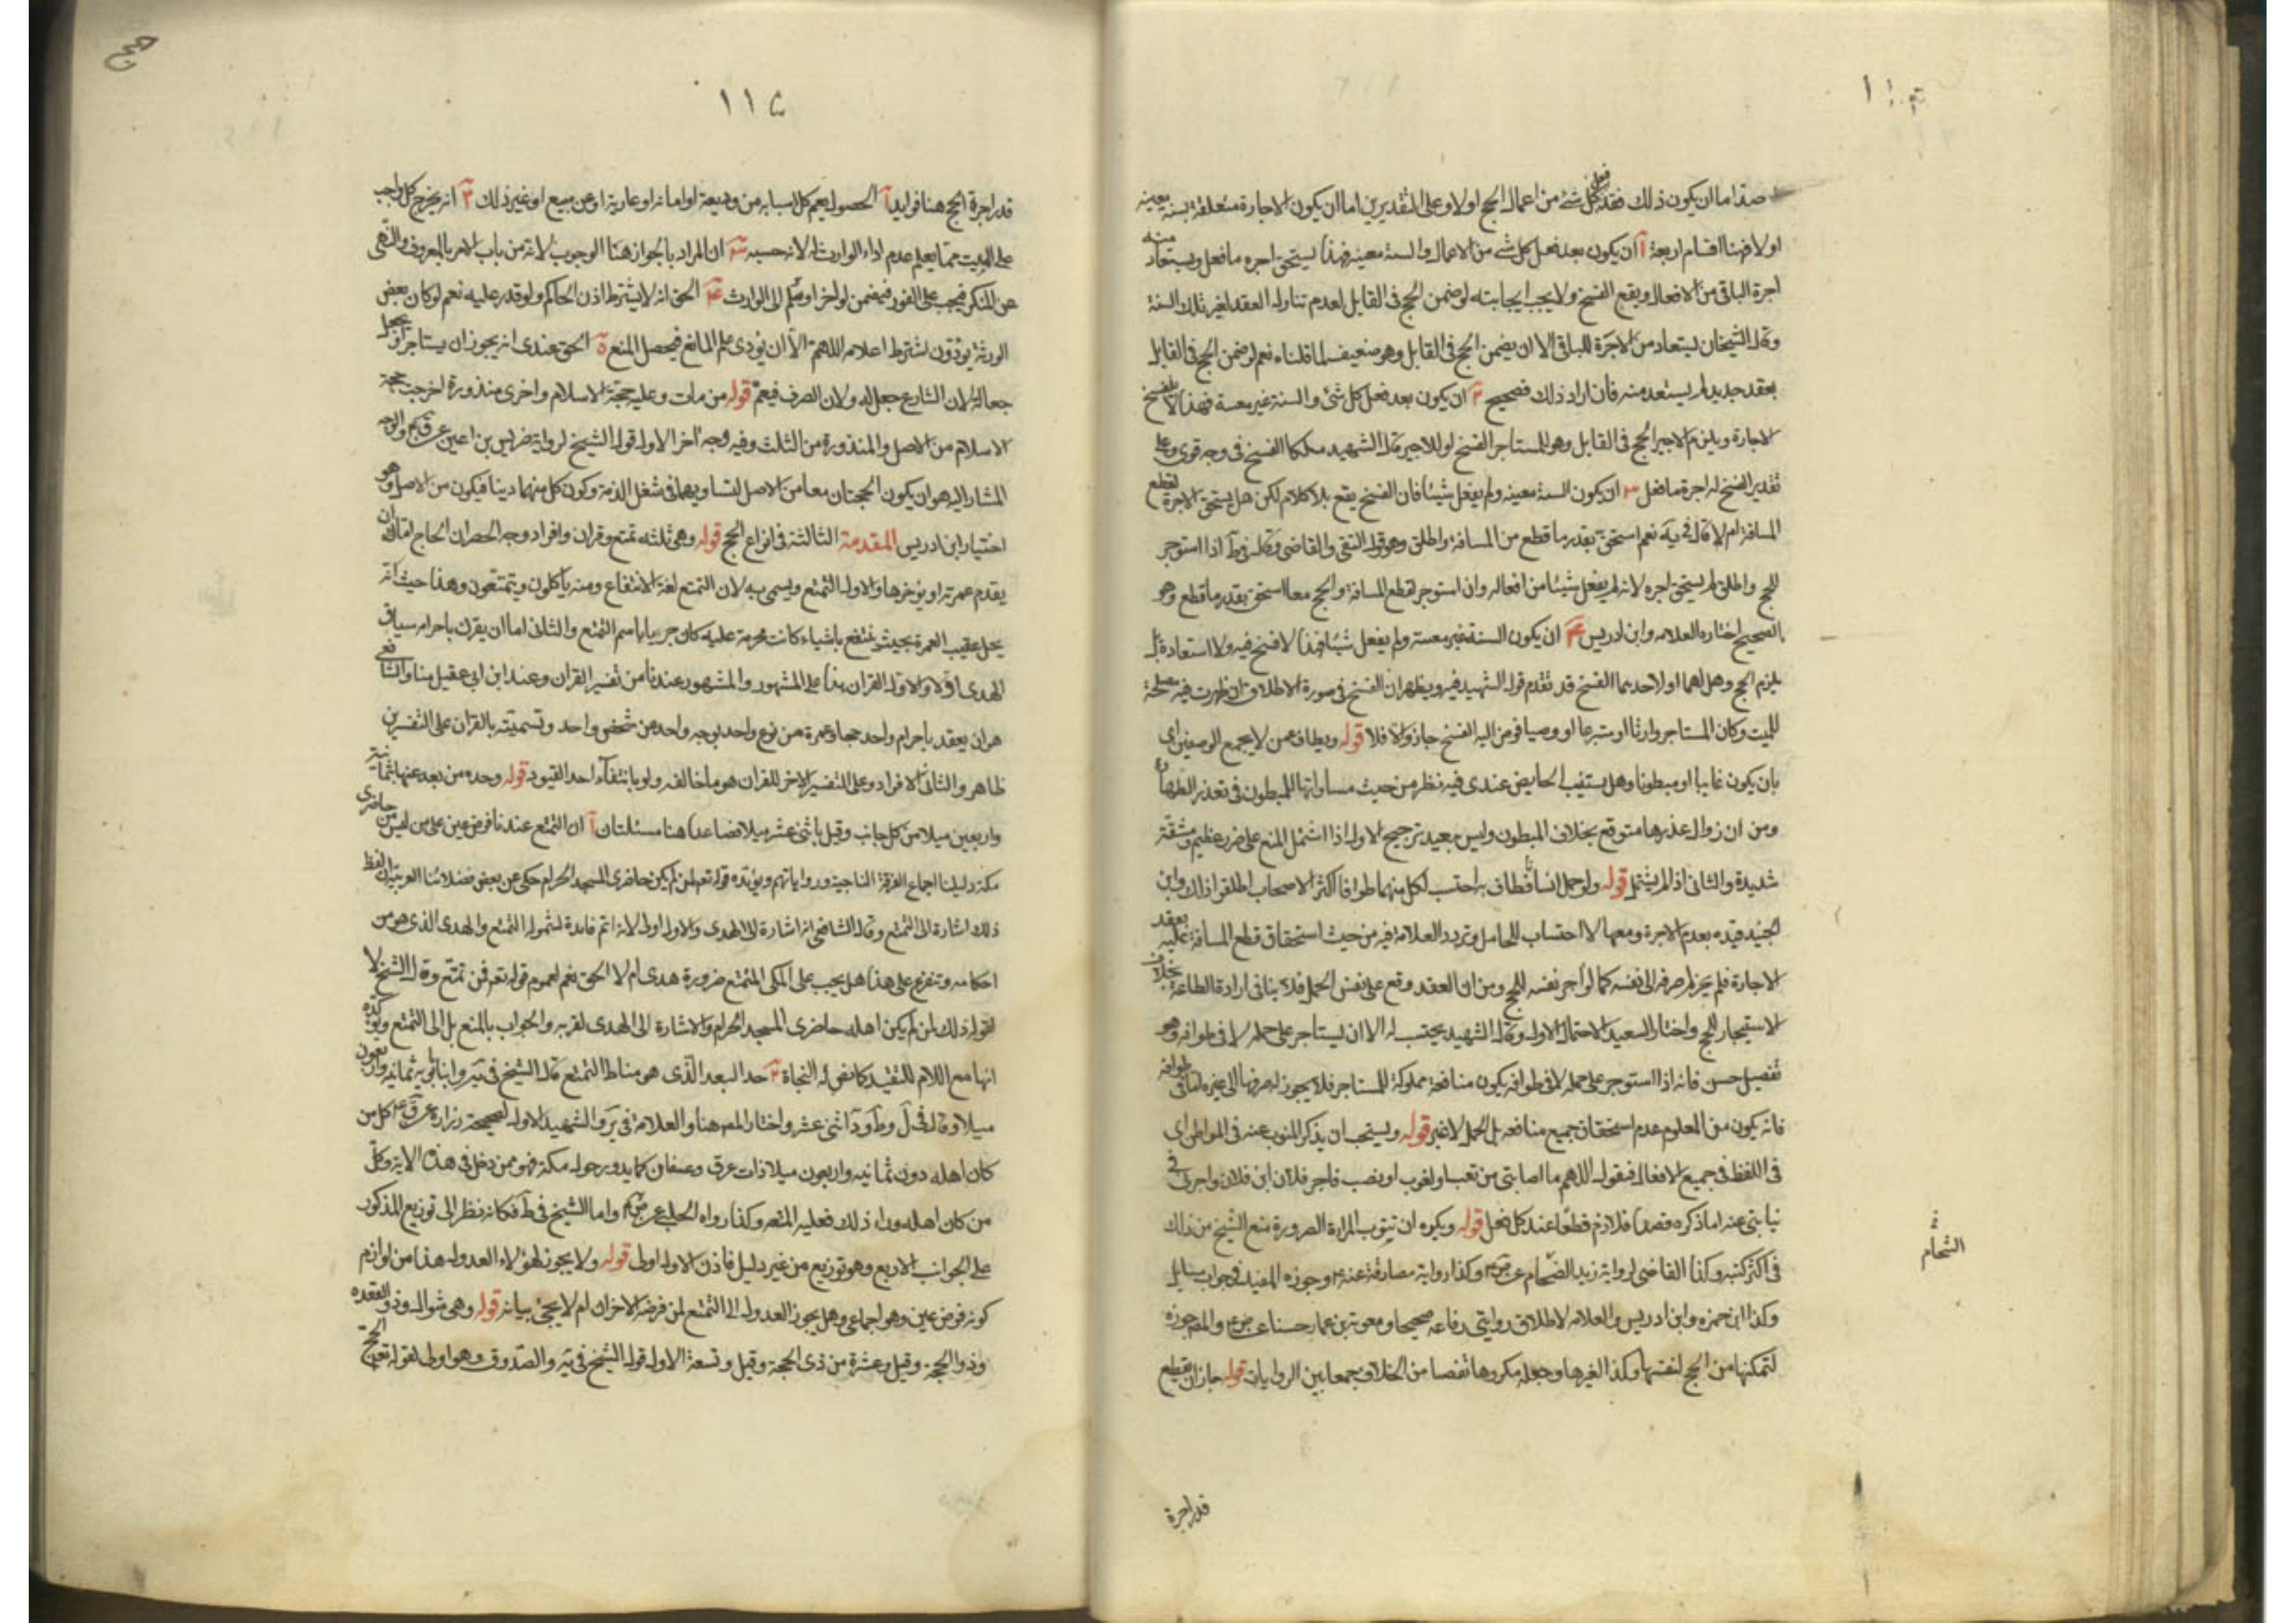 صدا اما ان يكون ذلك فعل كل شئ من اعمال الحج اولا وعلى التقديرين اما ان يكون الاجارة متعلقة بسنة معينة
اولا فهنا اقسام اربعة آ ان يكون بعد فعل كل شئ من الاعمال والسنة معينه فهذا يستحق اجره ما فعل ويستعاد منه
اجرة الباقى من الافعال ويقع الفسخ ولا يجب اجابته لو ضمن الحج فى القابل لعدم تناول العقد لغير تلك السنة
وقال الشيخان يستعاد من الاجرة للباقى الا ان يضمن الحج فى القابل وهو ضعيف لما قلناه نعم لو ضمن الحج فى القابل
بعقد جديد لم يستعد منه فان اراد ذلك فصحيح ٢ ان يكون بعد فعل كل شئ والسنة غير معينة فهذا لا تنفسخ
الاجارة ويلزم الاجير الحج فى القابل وهو للمستاجر الفسخ او للاجير قال الشهيد ملكا الفسخ فى وجه قوى وعلى
تقدير الفسخ له اجرة ما فعل ٣ ان يكون السنة معينه ولم يفعل شيئا فان الفسخ يقع بلا كلام لكن هل يستحق الاجرة لقطع
المسافة ام لا قال فى يه نعم استحق بقدر ما قطع من المسافة واطلق وهو قول التقى والقاضى وقال فى ط اذا استوجر
للحج واطلق لم يستحق اجره لانه لم يفعل شيئا من افعاله وان استوجر لقطع المسافة والحج معا استحق بقدر ما قطع وهو
الصحيح اختاره العلامه وابن ادريس ٤ ان يكون السنة غير معينة ولم يفعل شيئا فهذا لا فسخ فيه ولا استعادة بل
يلزم الحج وهل لهما او لاحدهما الفسخ قد تقدم قول الشهيد فيه ويظهر ان الفسخ فى صورة الاطلاق ان ظهرت فيه مصلحة
للميت وكان المستاجر وارثا او متبرعا او وصيا فوض اليه الفسخ جاز والا فلا قوله ويطاف عمن لا يجمع الوصفين اى
بان يكون غايبا او مبطونا وهل يستنيب الحايض عندى فيه نظر من حيث مساواتها للمبطون فى تعذر الطهارة
ومن ان زوال عذرها متوقع بخلاف المبطون وليس ببعيد ترجيح الاول اذا اشتمل المنع على ضرر عظيم ومشقة
شديدة والثانى اذا لم يشتمل قوله ولو حمل انسانا فطاف به احتسب لكل منهما طوافا اكثر الاصحاب اطلقوا ذلك وابن
الجنيد قيده بعدم الاجرة ومعها لا احتساب للحامل وتردد العلامة فيه من حيث استحقاق قطع المسافة عليه بعقد
الاجارة فلم يجز له صرفه الى نفسه كما لو آجر نفسه للحج ومن ان العقد وقع على نفس الحمل فلا ينافى ارادة الطاعة بخلاف
الاستيجار للحج واختار السعيد الاحتمال الاول وقال الشهيد يحتسب له الا ان يستاجر على حمله لا فى طوافه وهو
تفصيل حسن فانه اذا استوجر على حمله لا فى طوافه يكون منافعه مملوكة للمستاجر فلا يجوز له صرفها الى غيره اما فى طوافه
فانه يكون من المعلوم عدم استحقاق جميع منافعه بل الحمل لا غير قوله ويستحب ان يذكر المنوب عنه فى المواطن اى
فى اللفظ فى جميع الافعال فيقول اللهم ما اصابنى من تعب او لغوب او نصب فاجر فلان ابن فلان واجرنى فى
نيابتى عنه اما ذكره قصدا فلازم قطعا عند كل فعل قوله ويكره ان تنوب المراة الصرورة منع الشيخ من ذلك
فى اكثر كتبه وكذا القاضى لرواية زيد الشحام عن ص وكذا رواية مصادف عنه وجوزه المفيد فى جواب مسايل
وكذا ابن حمزه وابن ادريس والعلامه لاطلاق روايتى رفاعه صحيحا ومعوية بن عمار حسنا عن ص والمص جوزه
لتمكنها من الحج لنفسها وكذا لغيرها وجعله مكروها تفصا من الخلاف وجمعا بين الروايات قوله جاز ان يقطع
الشحام
قدر اجرة
١١٥
حج
قدر اجرة الحج هنا فوايد آ الحصول يعم كل اسبابه من وديعة او امانه او عارية او عن مبيع او غير ذلك ٢ انه يخرج كل واجب
على الميت مما يعلم عدم اداء الوارث له لانه حسبه ٣ ان المراد بالجواز هنا الوجوب لانه من باب الامر بالمعروف والنهى
عن المنكر فيجب على الفور فيضمن لو اخر او سلم الى الوارث ٤ الحق انه لا يشترط اذن الحاكم ولو قدر عليه نعم لو كان بعض
الورثة يؤدون اشترط اعلامه اللهم الا ان يؤدى علم المانع فيحصل المنع ٥ الحق عندى انه يجوز ان يستاجر او يجعل
جعالة لان الشارع جعل له ولان الصرف فيعم قوله من مات وعليه حجة الاسلام واخرى منذورة اخرجت حجة
الاسلام من الاصل والمنذورة من الثلث وفيه وجه اخر الاول قول الشيخ لرواية ضريس بن اعين عن ق والوجه
المشار اليه هو ان يكون الحجتان معا من الاصل لتساويهما فى شغل الذمة وكون كل منهما دينا فيكون من الاصل وهو
اختيار ابن ادريس المقدمة الثالثة فى انواع الحج قوله وهى ثلثه تمتع وقران وافراد وجه الحصر ان الحاج اما ان
يقدم عمرته او يؤخرها والاول التمتع ويسمى به لان التمتع لغة الانتفاع ومنه ياكلون ويتمتعون وهذا حيث انه
يحل عقيب العمرة بحيث ينتفع باشياء كانت محرمة عليه كان حريا باسم التمتع والثانى اما ان يقرن باحرامه سياق
الهدى اولا والاول القران هذا على المشهور والمشهور عندنا من تفسير القران وعند ابن ابى عقيل منا والشافعى
هو ان يعقد باحرام واحد حجا وعمرة من نوع واحد بوجه واحد من شخص واحد وتسميته بالقران على التفسيرين
ظاهر والثانى الافراد وعلى التفسير الاخر للقران هو ما خالفه ولو بانتفاء احد القيود قوله وحده من بعد عنها بثمانية
واربعين ميلا من كل جانب وقيل باثنى عشر ميلا فصاعدا هنا مسئلتان آ ان التمتع عندنا فرض عين على من ليس من حاضرى
مكة دليلنا اجماع الفرقة الناجية ورواياتهم ويؤيده قوله تعم لمن لم يكن حاضرى المسجد الحرام حكى عن بعض فضلائنا العربية ان لفظ
ذلك اشارة الى التمتع وقال الشافعى انه اشارة الى الهدى والاول اولى لانه اتم فايدة لشموله التمتع والهدى الذى هو من
احكامه ويتفرع على هذا هل يجب على المكى المتمتع ضرورة هدى ام لا الحق نعم لعموم قوله تعم فمن تمتع وقال الشيخ لا
لقوله ذلك لمن لم يكن اهله حاضرى المسجد الحرام والاشارة الى الهدى لقربه والجواب بالمنع بل الى التمتع ويؤكده
انها مع اللام للبعيد كما نص له النحاة ٢ حد البعد الذى هو مناط التمتع قال الشيخ فى يه وابنا بابويه ثمانيه واربعون
ميلا وقال فى ل وط و اثنى عشر واختار المص هنا والعلامة فى ير والشهيد الاول لصحيحة زرارة عن ق كل من
كان اهله دون ثمانيه واربعون ميلا ذات عرق وعسفان كما يدور حول مكة فهو ممن دخل فى هذه الاية وكل
من كان اهله وراء ذلك فعليه المتعه وكذا رواه الحلبى عن ص واما الشيخ فى ط فكانه نظر الى توزيع المذكور
على الجوانب الاربع وهو توزيع من غير دليل فاذن الاول اولى قوله ولا يجوز لهؤلاء العدول هذا من لوازم
كونه فرض عين وهو اجماعى وهل يجوز العدول الى التمتع لمن فرضه الاخران ام لا يجئ بيانه قوله وهى شوال وذو القعده
وذو الحجة وقيل وعشرة من ذى الحجة وقيل وتسعة الاول قول الشيخ فى يه والصدوق وهو اولى لقوله تعم الحج